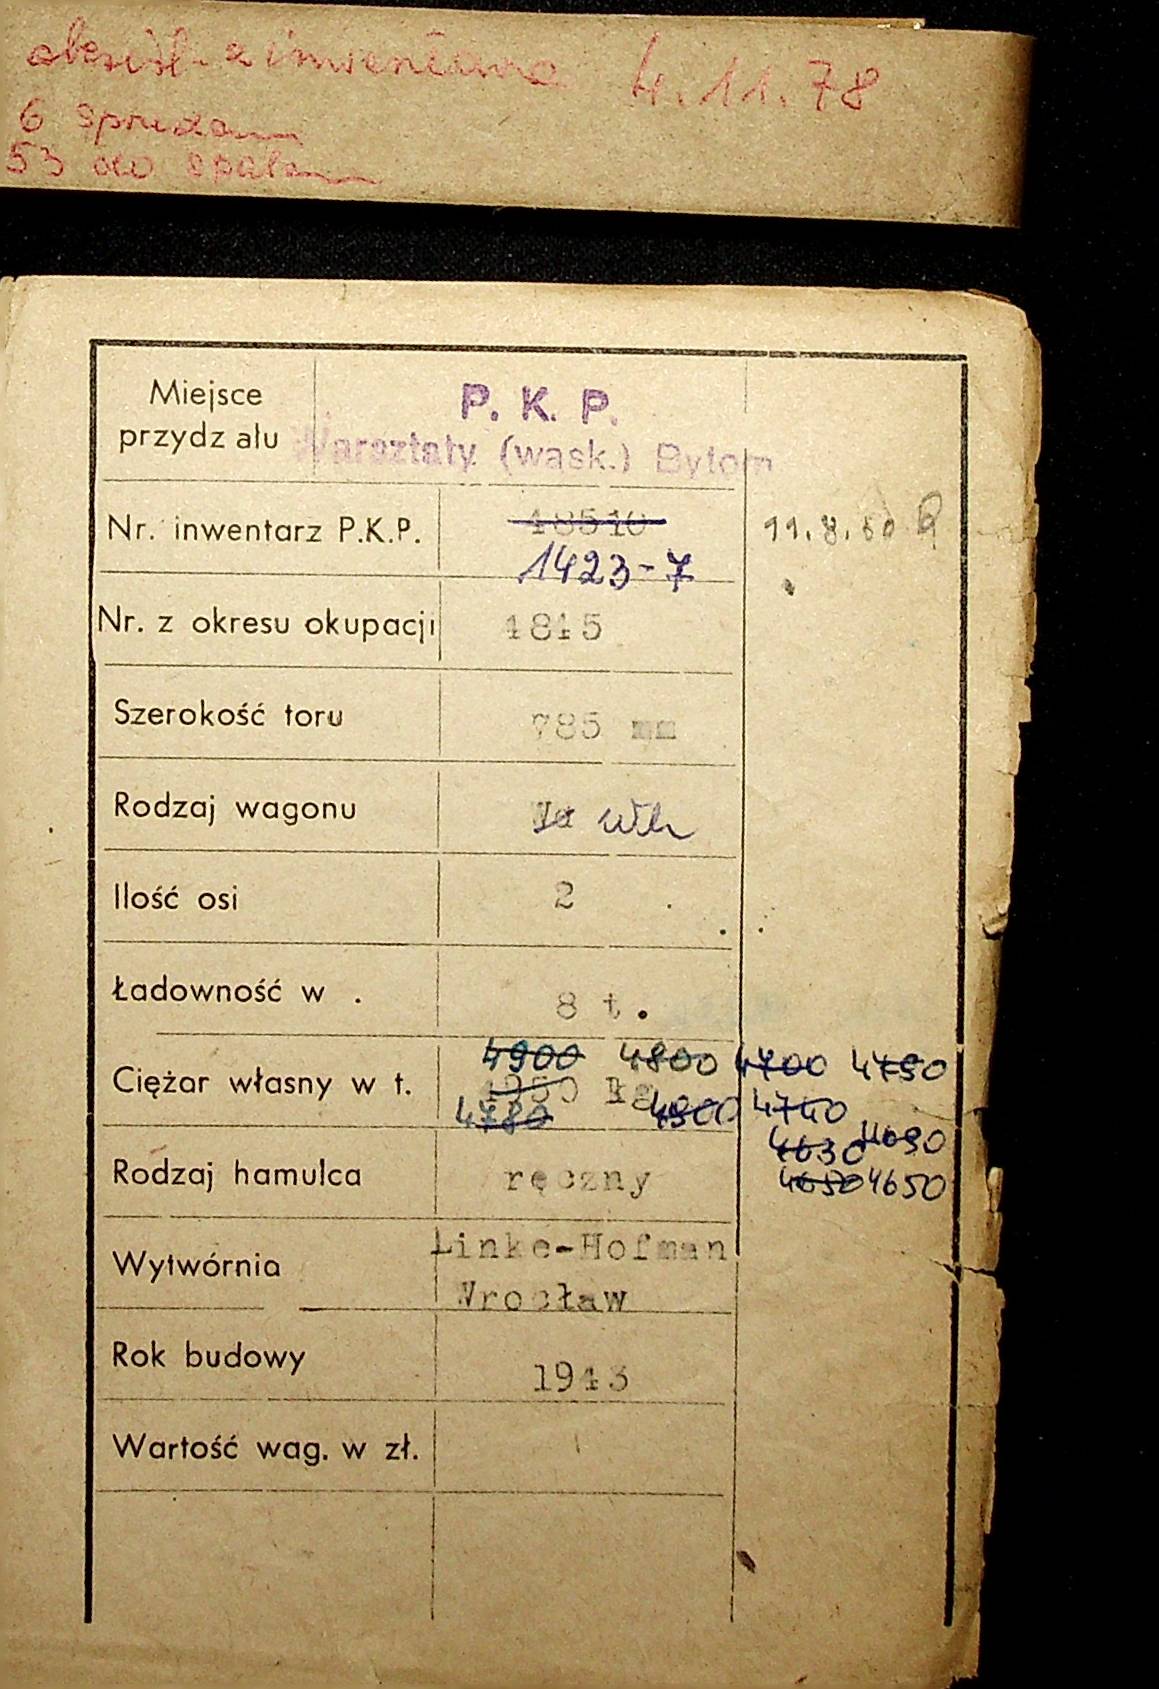 z inwentarza 4.11.78
6
53 do
Miejsce
przydz ału
P. K. P.
Warsztaty (wask.) Bytom
Nr. inwentarz P.K.P. 48510 11.8.50
1423-7
Nr. z okresu okupacji 4845
Szerokość toru 785 mm
Rodzaj wagonu
Ilość osi 2
Ładowność w . 8 t.
4900 4800 4700 4750
Ciężar własny w t. kg
4780 4900 4740
4630 4690
Rodzaj hamulca ręczny 4650 4650
Wytwórnia Linke-Hofman
Wrocław
Rok budowy 1943
Wartość wag. w zł.